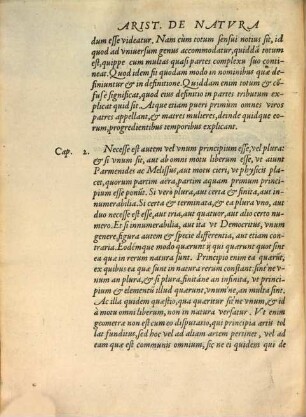 ARIST. DE NATVRA
dum esse videatur. Nam cùm totum sensui notius sit, id
quod ad vniuersum genus accommodatur, quiddã totum
est, quippe cum multas quasi partes complexu suo conti-
neat. Quod idem fit quodam modo in nominibus quæ de-
finiuntur & in definitione. Quiddam enim totum & cõ-
fusè significat, quod eius definitio in partes tributum ex-
plicat quid sit. Atque etiam pueri primùm omnes viros
patres appellant, & matres mulieres, deinde quidque eo-
rum, progredientibus temporibus explicant.
Cap. 2. Necesse est autem vel vnum principium esse, vel plura:
& si vnum sit, aut ab omni motu liberum esse, vt aiunt
Parmenides ac Melissus, aut motu cieri, vt physicis pla-
cet, quorum partim aëra, partim aquam primum princi-
pium esse ponit. Si verò plura, aut certa & finita, aut in-
numerabilia. Si certa & terminata, & ea plura vno, aut
duo necesse est esse, aut tria, aut quatuor, aut alio certo nume-
ro. Et si innumerabilia, aut ita vt Democritus, vnum
genere, figura autem & specie differentia, aut etiam con-
traria. Eodémque modo quærunt ij qui quærunt quot sint
ea quæ in rerum natura sunt. Principio enim ea quærũt,
ex quibus ea quæ sunt in natura rerum constant, sint ne v-
num an plura, & si plura, finitáne an infinita, vt prin-
cipium & elementum illud quærunt, vnum ne, an multa sint.
Ac illa quidem quæstio, qua quæritur sit ne vnum, & id
à motu omni liberum, non in natura versatur. Vt enim
geometræ non est cum eo disputatio, qui principia artis tol-
lat funditus, sed hoc vel ad aliam artem pertinet, vel ad
eam quæ est communis omnium, sic ne ei quidem qui de